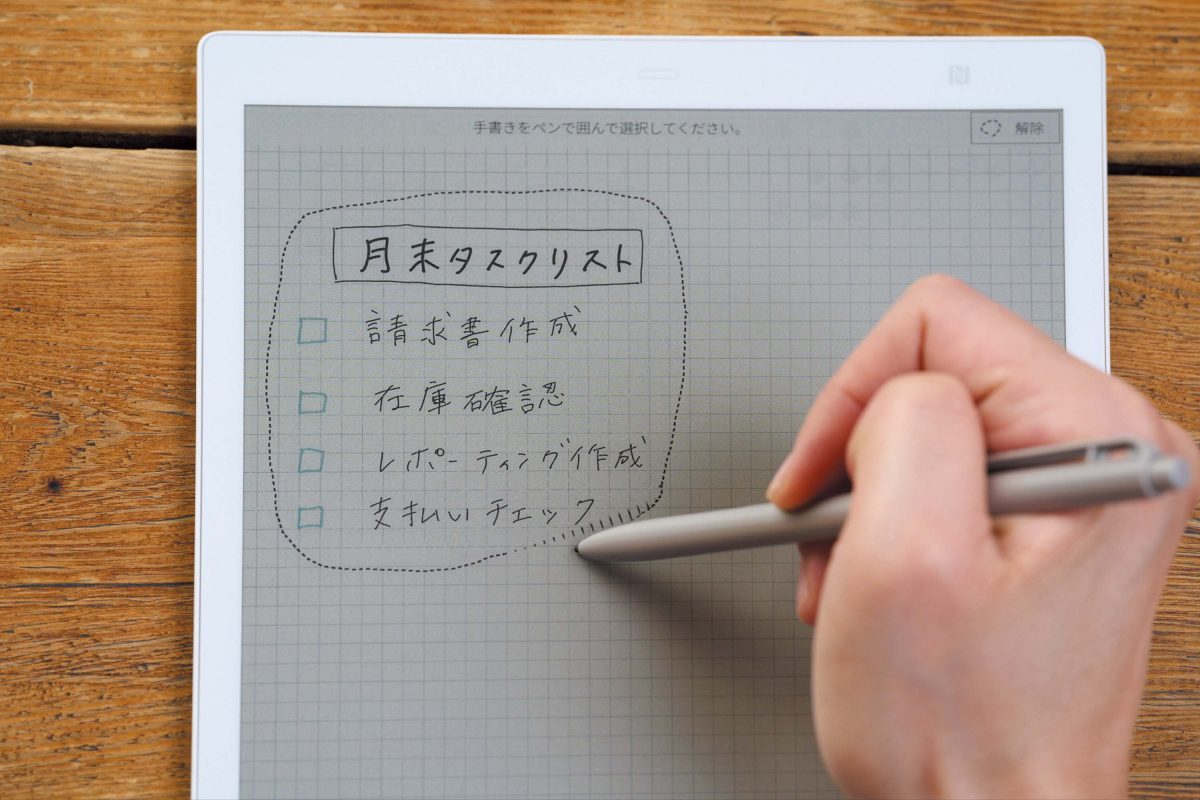 手書きをペンで囲んで選択してください。
解除
月末タスクリスト
請求書作成
在庫確認
レポーティング作成
支払いチェック